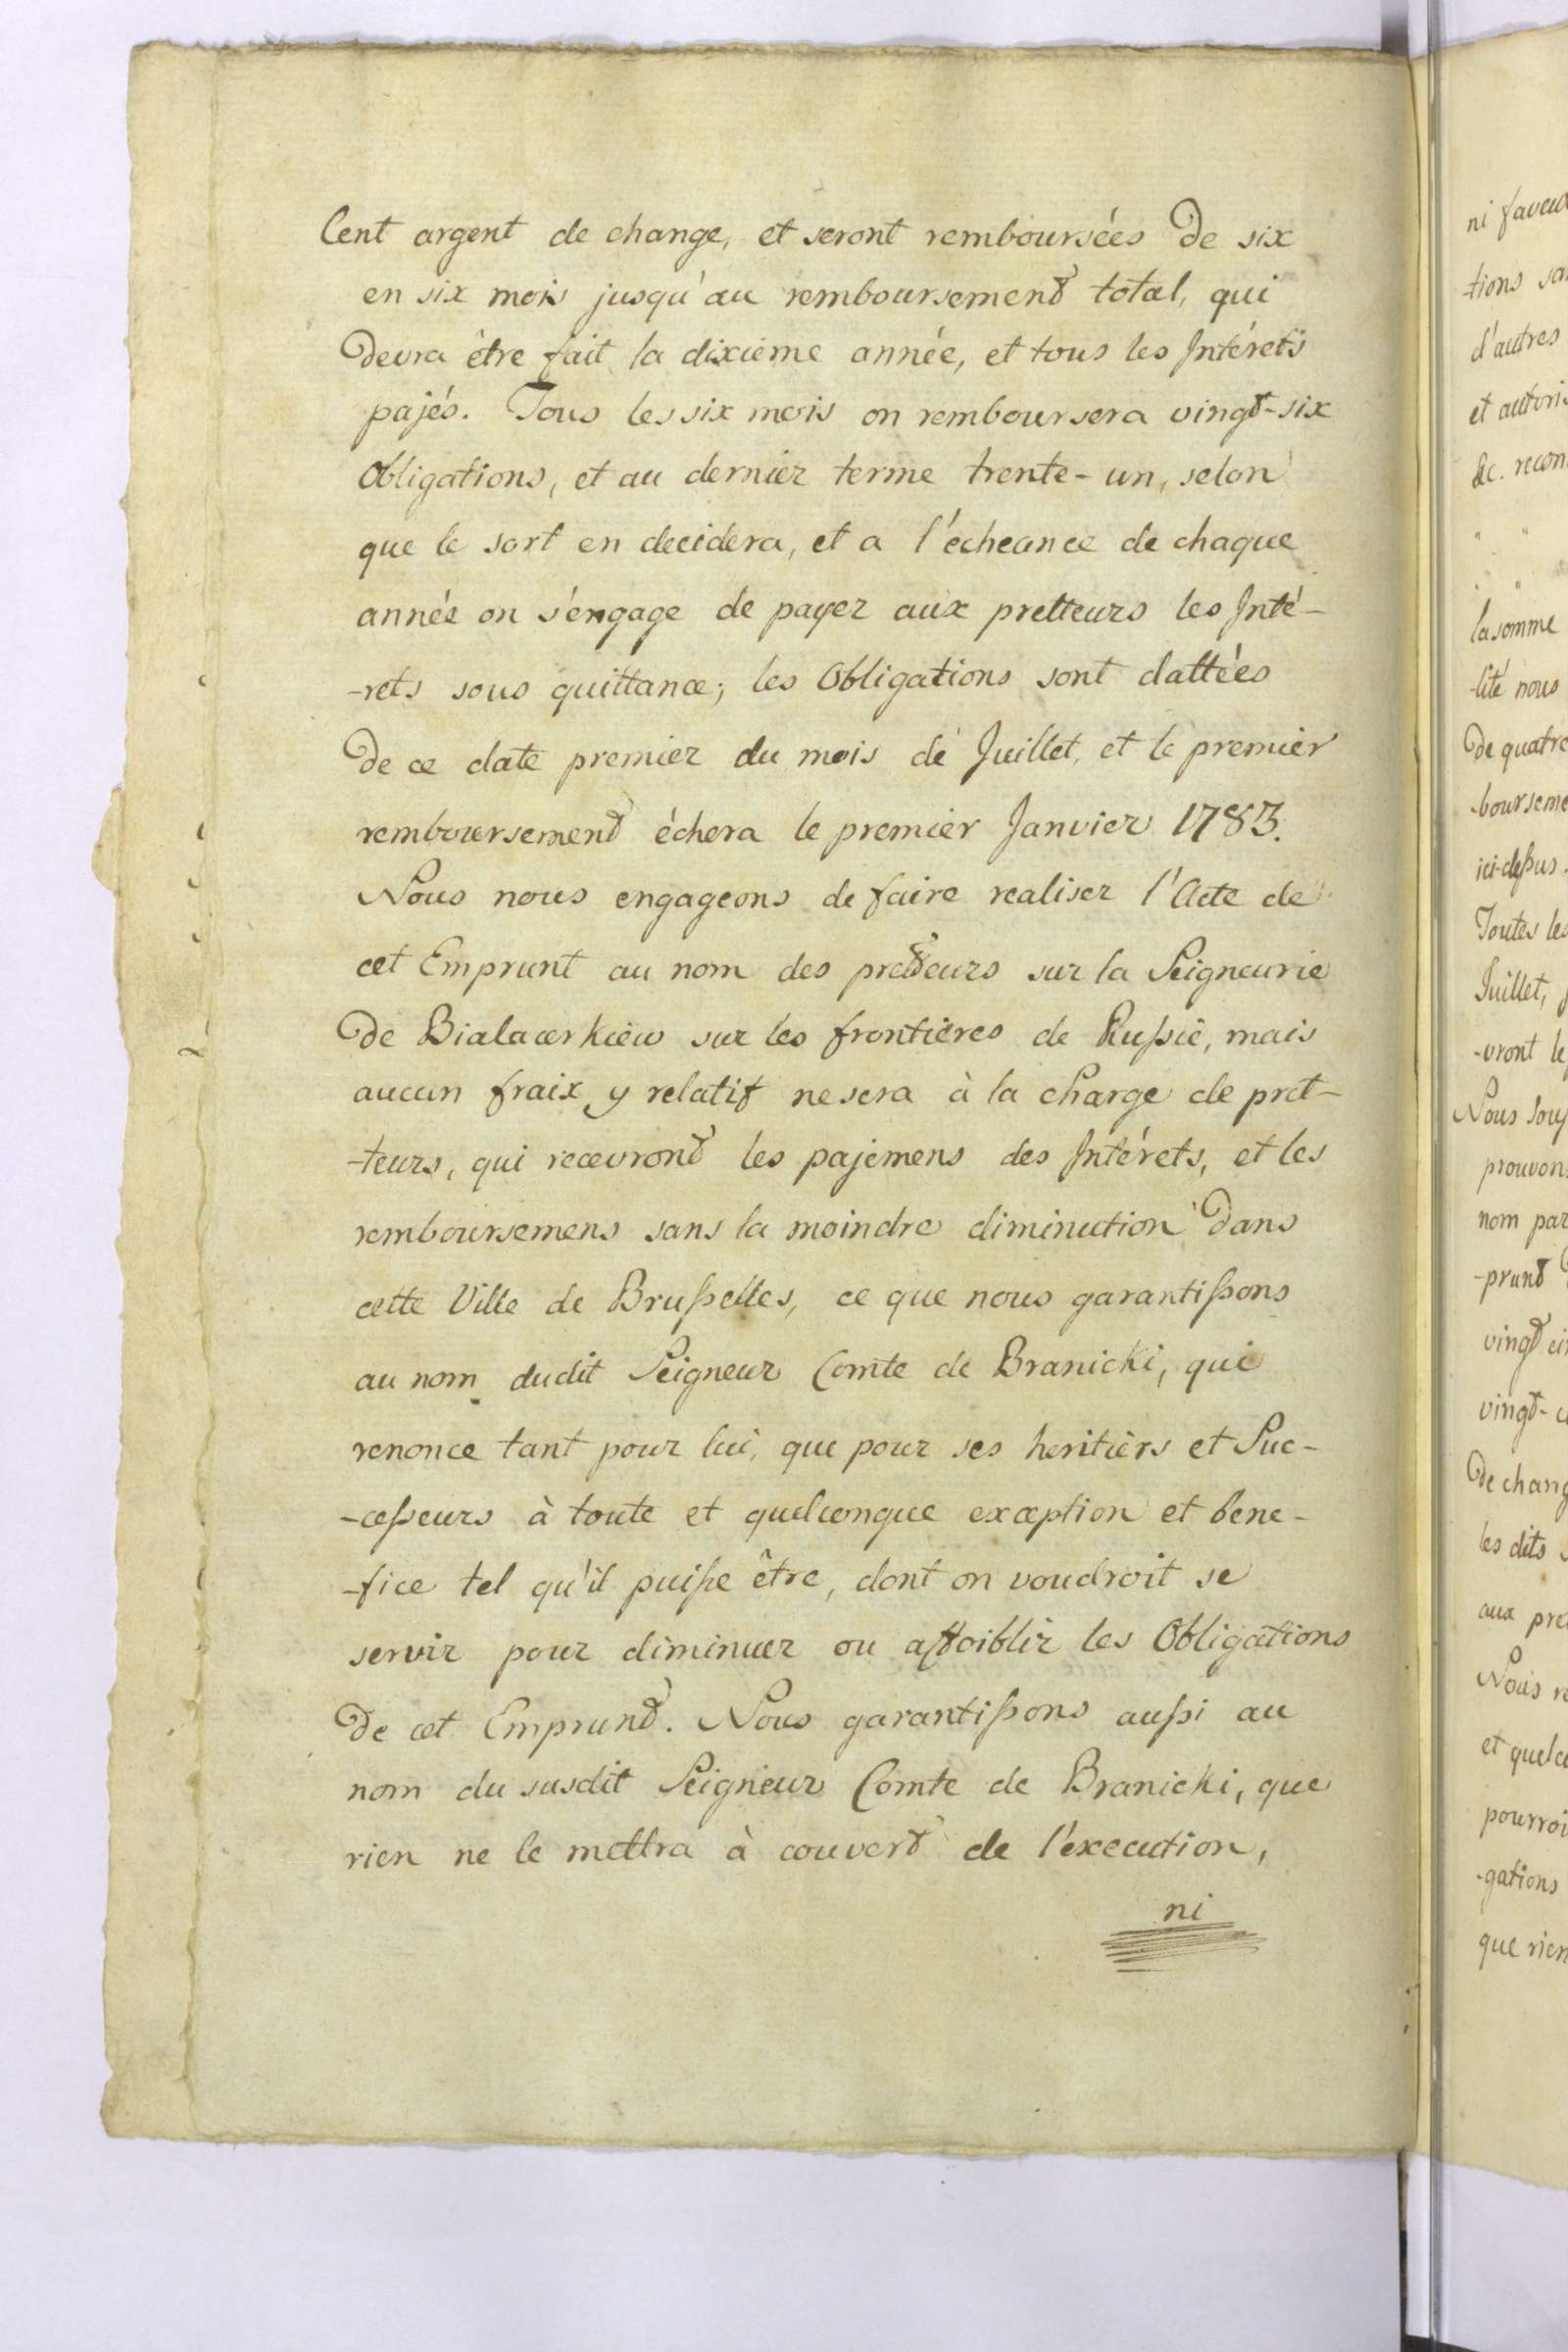 Cent argent de change, et seront remboursées De six
en six mois jusqu'au remboursement total, qui
Devra être fait la dixieme année, et tous les Intérets
pajés. Tous les six mois on remboursera vingt-six
Obligations, et au dernier terme trente-un, selon
que le sort en decidera, et a l'écheance de chaque
année on s'engage de payer aux pretteurs les Inté-
-rets sous quittance; les Obligations sont dattées
De ce date premier du mois de Juillet, et le premier
remboursement échera le premier Janvier 1783.
Nous nous engageons de faire realiser l'Acte de
cet Emprunt au nom des pretteurs sur la Seigneurie
De Bialacerkiew sur les frontières de Russie, mais
aucun fraix y relatif ne sera à la charge de pret-
-teurs, qui recevront les pajemens des Intérets, et les
remboursemens sans la moindre diminution Dans
cette Ville de Brusselles, ce que nous garantissons
au nom dudit Seigneur Comte de Branicki, qui
renonce tant pour lui, que pour ses heritiers et Suc-
-cesseurs à toute et quelconque exception et bene-
-fice tel qu'il puisse être, dont on voudroit se
servir pour diminuer ou affoiblir les Obligations
De cet Emprunt. Nous garantissons aussi au
nom du susdit Seigneur Comte de Branicki, que
rien ne le mettra à couvert de l'execution,
ni
ni
-tions
d'autres
et
&c.
la somme
-lité nous
De quatre
ici-dessus.
Toutes les
Juillet,
-vront
Nous
nom par
-prunt
vingt
vingt-
De
les dits
aux
Nous
et
-gations
que rien